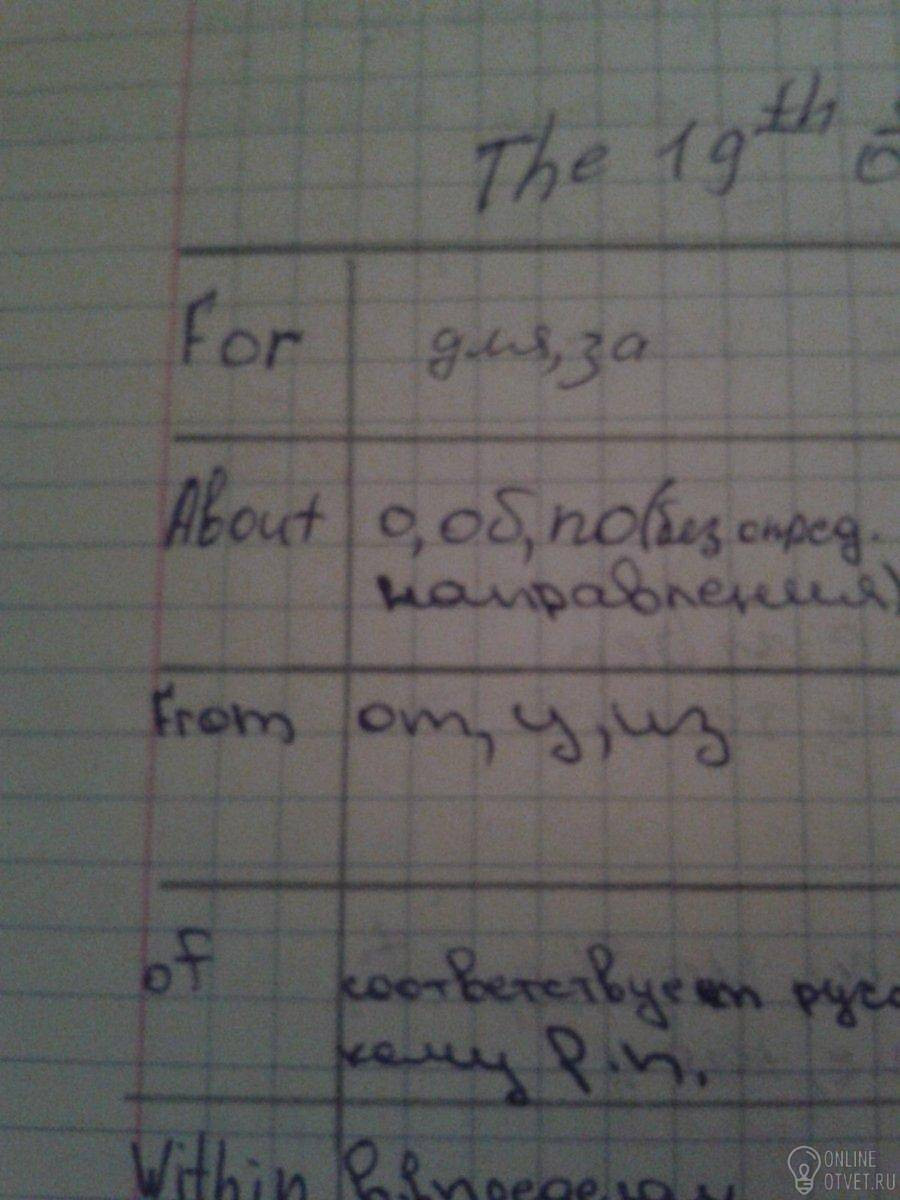 The 19th
For для, за
About о, об, по (без опред.
направления)
From от, у, из
of соответствует русс
кому Р.п.
Within В, впределах
ONLINE
OTVET.RU